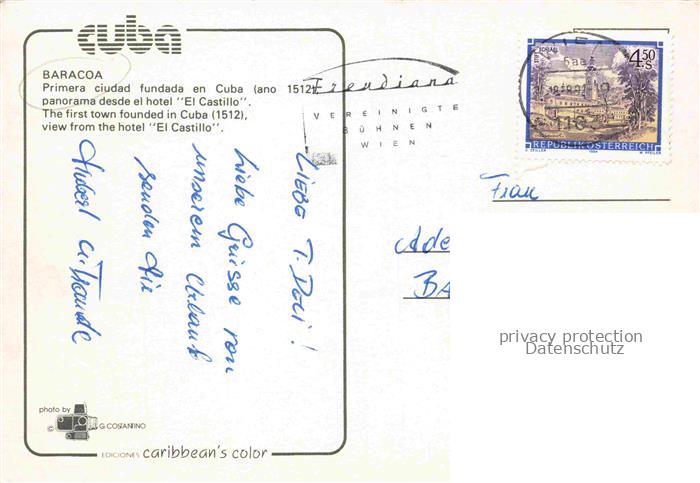 cuba
BARACOA
Primera ciudad fundada en Cuba (ano 1512)
panorama desde el hotel "El Castillo".
The first town founded in Cuba (1512),
view from the hotel "El Castillo".
Liebe T. Doci!
Liebe Grüsse von
unserem Urlaub
senden Dir
Hubert u. Traude
photo by
© G. COSTANTINO
EDICIONES caribbean's color
Freudiana
VEREINIGTE
BÜHNEN
WIEN
4.50
S
REPUBLIK ÖSTERREICH
Frau
Ade
BA
privacy protection
Datenschutz